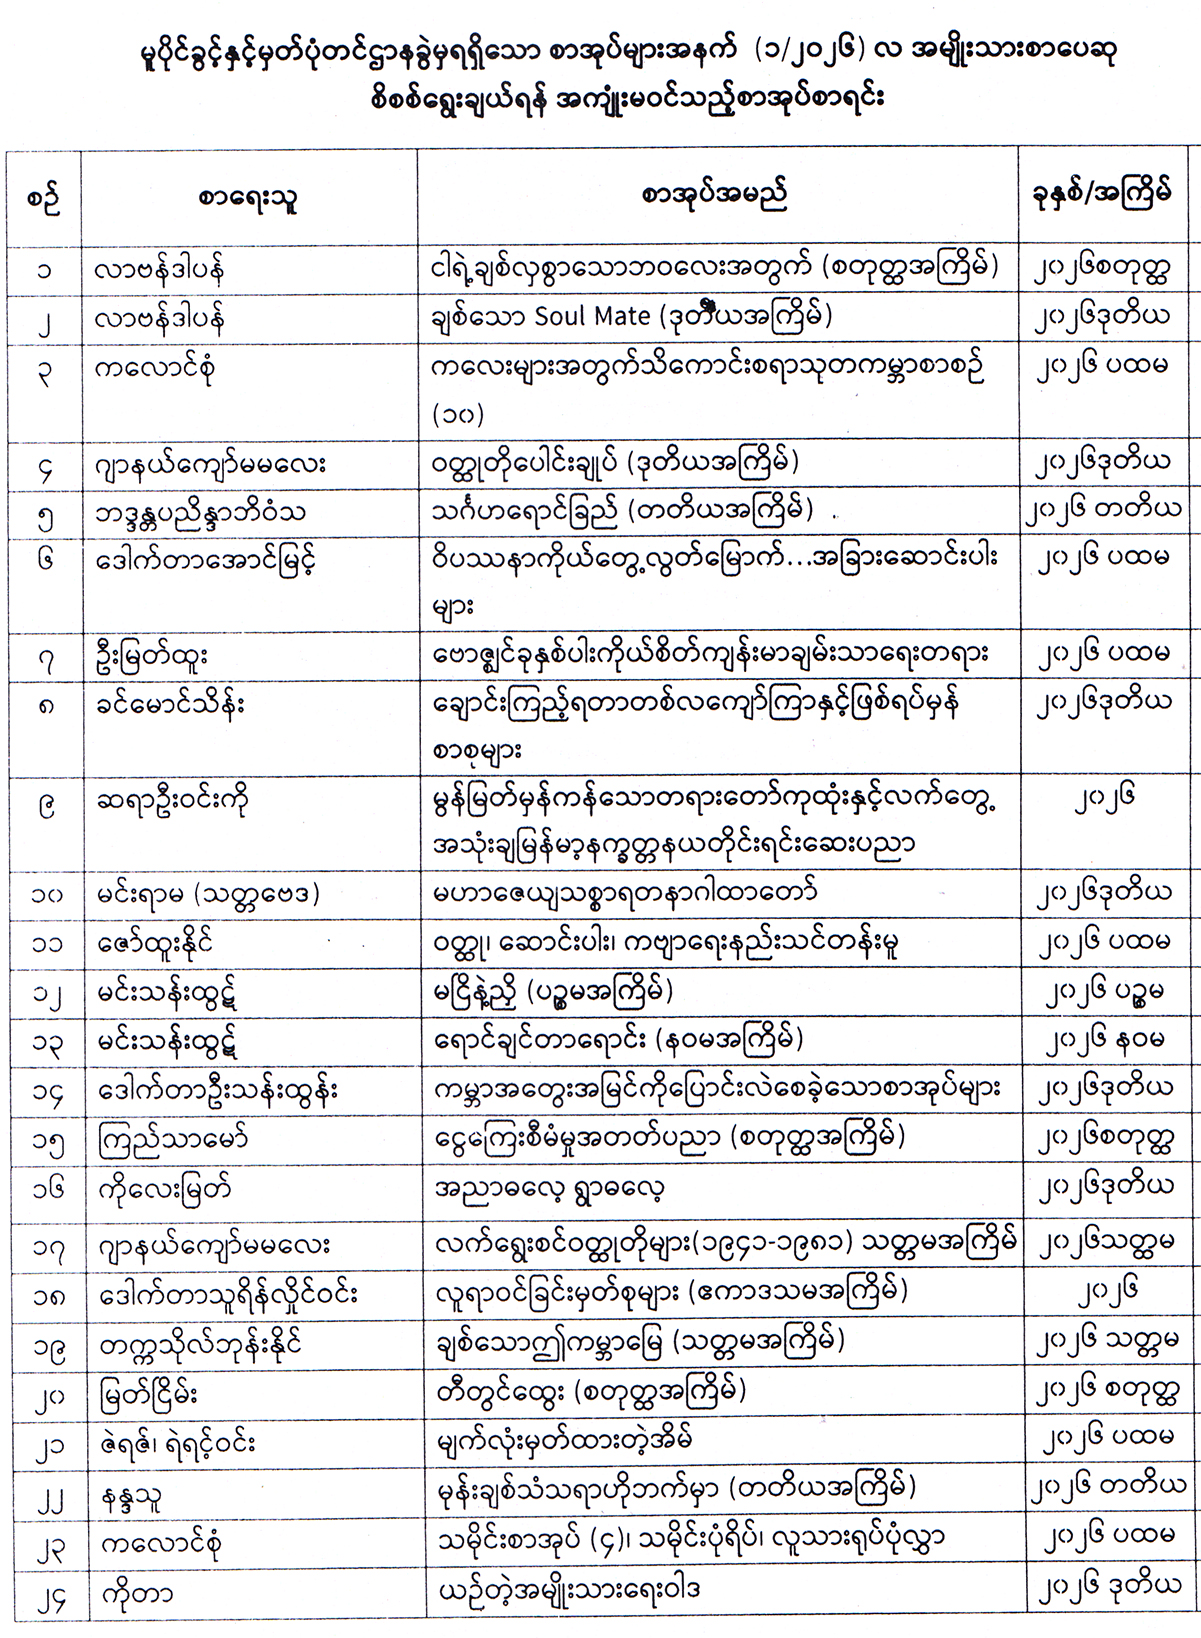 မူပိုင်ခွင့်နှင့်မှတ်ပုံတင်ဌာနခွဲမှရရှိသော စာအုပ်များအနက် (၁/၂၀၂၆) လ အမျိုးသားစာပေဆု
စိစစ်ရွေးချယ်ရန် အကျုံးမဝင်သည့်စာအုပ်စာရင်း
စဉ် စာရေးသူ စာအုပ်အမည် ခုနှစ်/အကြိမ်
၁ လာဗန်ဒါပန် ငါရဲ့ချစ်လှစွာသောဘဝလေးအတွက် (စတုတ္ထအကြိမ်) ၂၀၂၆စတုတ္ထ
၂ လာဗန်ဒါပန် ချစ်သော Soul Mate (ဒုတိယအကြိမ်) ၂၀၂၆ဒုတိယ
၃ ကလောင်စုံ ကလေးများအတွက်သိကောင်းစရာသုတကမ္ဘာစာစဉ် ၂၀၂၆ ပထမ
(၁၀)
၄ ဂျာနယ်ကျော်မမလေး ဝတ္ထုတိုပေါင်းချုပ် (ဒုတိယအကြိမ်) ၂၀၂၆ဒုတိယ
၅ ဘဒ္ဒန္တပညိန္ဒာဘိဝံသ သင်္ဂဟရောင်ခြည် (တတိယအကြိမ်) ၂၀၂၆ တတိယ
၆ ဒေါက်တာအောင်မြင့် ဝိပဿနာကိုယ်တွေ့လွတ်မြောက်...အခြားဆောင်းပါး ၂၀၂၆ ပထမ
များ
၇ ဦးမြတ်ထူး ဗောဇ္ဈင်ခုနှစ်ပါးကိုယ်စိတ်ကျန်းမာချမ်းသာရေးတရား ၂၀၂၆ ပထမ
၈ ခင်မောင်သိန်း ချောင်းကြည့်ရတာတစ်လကျော်ကြာနှင့်ဖြစ်ရပ်မှန် ၂၀၂၆ဒုတိယ
စာစုများ
၉ ဆရာဦးဝင်းကို မွန်မြတ်မှန်ကန်သောတရားတော်ကုထုံးနှင့်လက်တွေ့ ၂၀၂၆
အသုံးချမြန်မာ့နက္ခတ္တနယတိုင်းရင်းဆေးပညာ
၁၀ မင်းရာမ (သတ္တဗေဒ) မဟာဇေယျသစ္စာရတနာဂါထာတော် ၂၀၂၆ဒုတိယ
၁၁ ဇော်ထူးနိုင် ဝတ္ထု၊ ဆောင်းပါး၊ ကဗျာရေးနည်းသင်တန်းမူ ၂၀၂၆ ပထမ
၁၂ မင်းသန်းထွဋ် မငြိနဲ့ညှိ (ပဉ္စမအကြိမ်) ၂၀၂၆ ပဉ္စမ
၁၃ မင်းသန်းထွဋ် ရောင်ချင်တာရောင်း (နဝမအကြိမ်) ၂၀၂၆ နဝမ
၁၄ ဒေါက်တာဦးသန်းထွန်း ကမ္ဘာအတွေးအမြင်ကိုပြောင်းလဲစေခဲ့သောစာအုပ်များ ၂၀၂၆ဒုတိယ
၁၅ ကြည်သာမော် ငွေကြေးစီမံမှုအတတ်ပညာ (စတုတ္ထအကြိမ်) ၂၀၂၆စတုတ္ထ
၁၆ ကိုလေးမြတ် အညာဓလေ့ ရွာဓလေ့ ၂၀၂၆ဒုတိယ
၁၇ ဂျာနယ်ကျော်မမလေး လက်ရွေးစင်ဝတ္ထုတိုများ(၁၉၄၁-၁၉၈၁) သတ္တမအကြိမ် ၂၀၂၆သတ္ထမ
၁၈ ဒေါက်တာသူရိန်လှိုင်ဝင်း လူရာဝင်ခြင်းမှတ်စုများ (ဧကာဒသမအကြိမ်) ၂၀၂၆
၁၉ တက္ကသိုလ်ဘုန်းနိုင် ချစ်သောဤကမ္ဘာမြေ (သတ္တမအကြိမ်) ၂၀၂၆ သတ္တမ
၂၀ မြတ်ငြိမ်း တီတွင်ထွေး (စတုတ္ထအကြိမ်) ၂၀၂၆ စတုတ္ထ
၂၁ ဇဲရဇ်၊ ရဲရင့်ဝင်း မျက်လုံးမှတ်ထားတဲ့အိမ် ၂၀၂၆ ပထမ
၂၂ နန္ဒသူ မုန်းချစ်သံသရာဟိုဘက်မှာ (တတိယအကြိမ်) ၂၀၂၆ တတိယ
၂၃ ကလောင်စုံ သမိုင်းစာအုပ် (၄)၊ သမိုင်းပုံရိပ်၊ လူသားရုပ်ပုံလွှာ ၂၀၂၆ ပထမ
၂၄ ကိုတာ ယဉ်တဲ့အမျိုးသားရေးဝါဒ ၂၀၂၆ ဒုတိယ